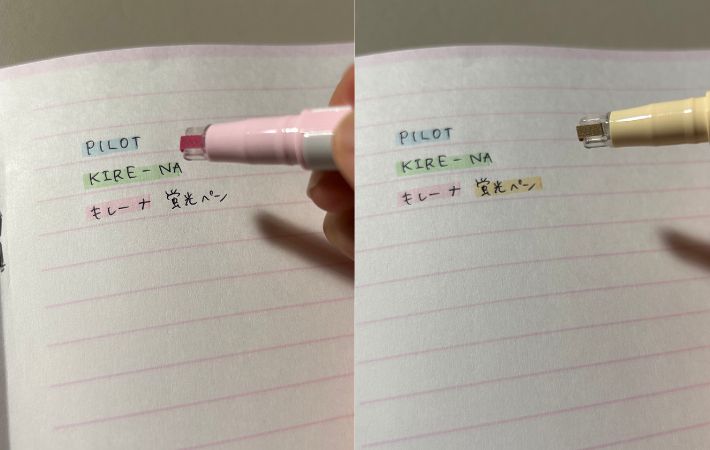 PILOT
KIRE-NA
キレーナ 蛍光ペン
PILOT
KIRE-NA
キレーナ 蛍光ペン